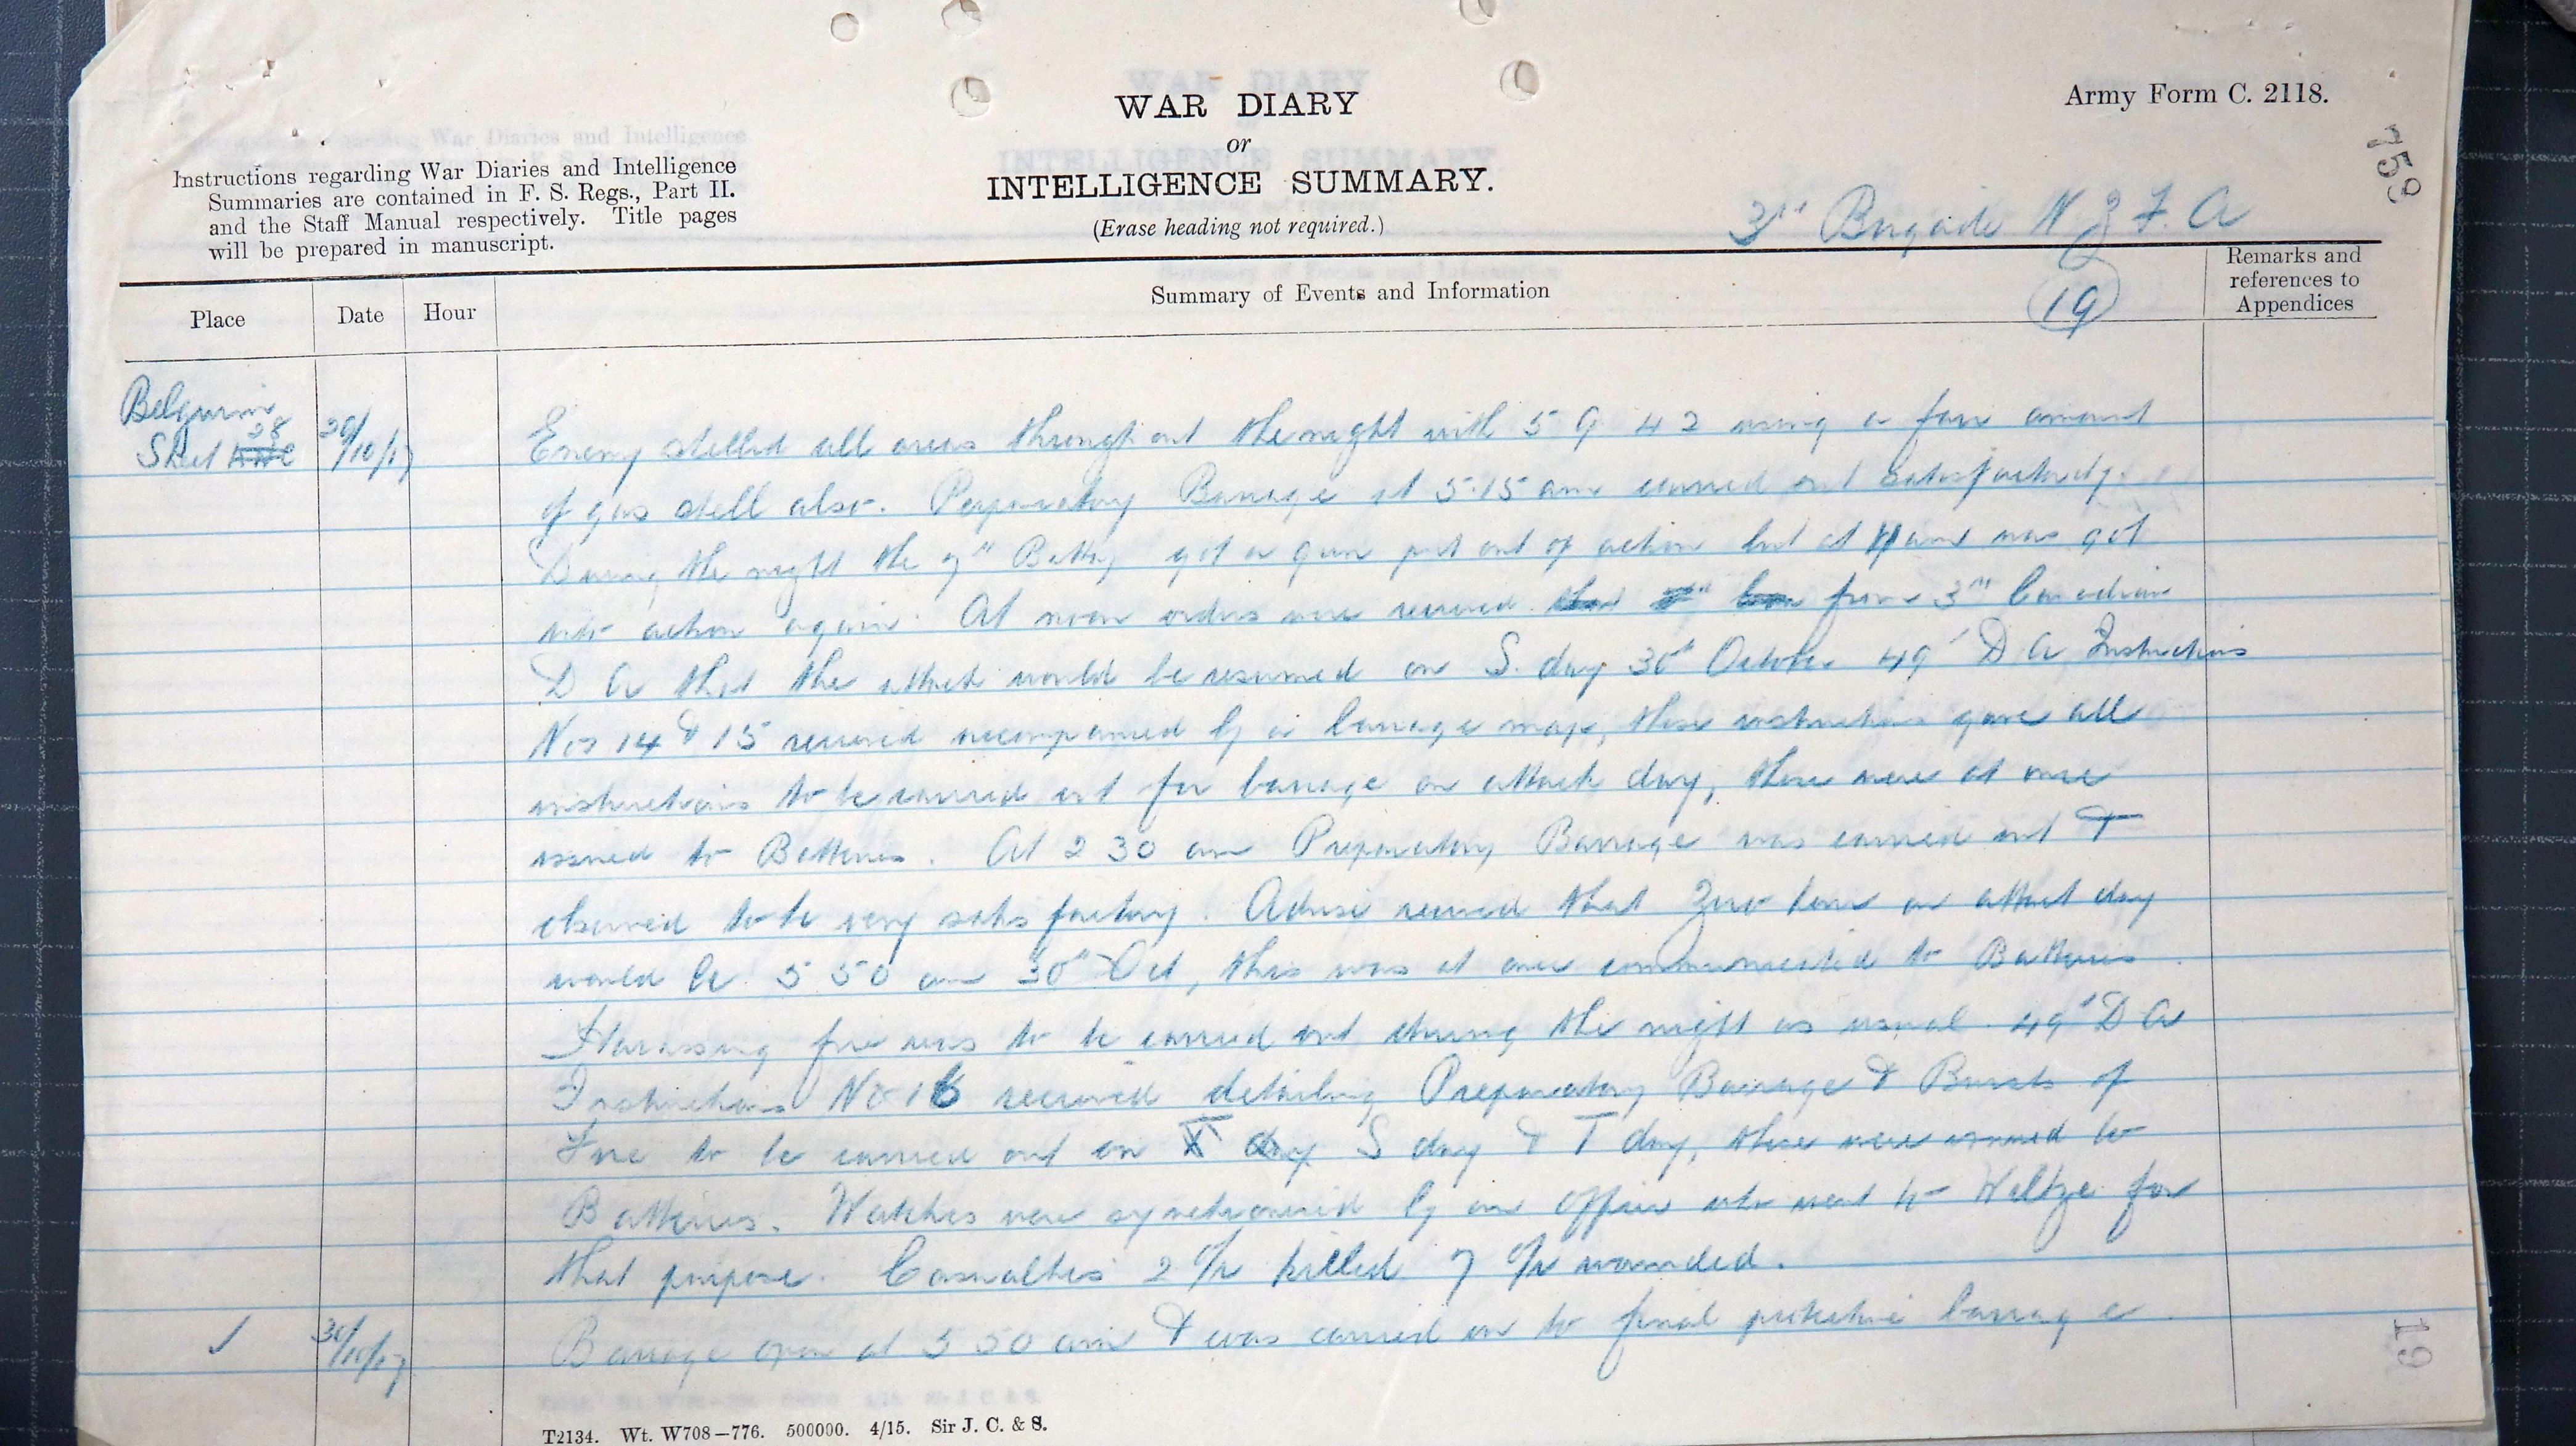 WAR DIARY
or
INTELLIGENCE SUMMARY.
(Erase heading not required.)
Army Form C. 2118.
759
Instructions regarding War Diaries and Intelligence
Summaries are contained in F. S. Regs., Part II.
and the Staff Manual respectively. Title pages
will be prepared in manuscript.
3rd Brigade N Z F. A
19
Place
Date
Hour
Summary of Events and Information
Remarks and
references to
Appendices
Belgium
Sheet 28
29/10/17
Enemy shelled all areas throughout the night with 5 9 4 2 using a fair amount
of gas shell also. Preparatory Barrage at 5.15 am carried out satisfactorily.
During the night the Battery got a gun put out of action but at 11 am was got
into action again. At noon orders were received from 3rd Canadian
D A that the attack would be resumed on S. day 30th October 49th D A Instructions
Nos 14 & 15 received accompanied by a barrage map, these instructions gave all
instructions to be carried out for barrage on attack day, these were at once
issued to Batteries. At 2 30 am Preparatory Barrage was carried out &
observed to be very satisfactory. Advise received that Zero hour on attack day
would be 5 50 am 30th Oct, this was at once communicated to Batteries.
Harassing fire was to be carried out during the night as usual. 49th D A
Instructions No 16 received detailing Preparatory Barrage & Bursts of
Fire to be carried out on S day & T day, these were issued to
Batteries. Watches were synchronised by an Officer who went to Weltje for
that purpose. Casualties 2 O/R killed 7 O/R wounded.
30/10/17
Barrage open at 5 50 am & was carried on to final protective barrage
19
T2134. Wt. W708—776. 500000. 4/15. Sir J. C. & S.